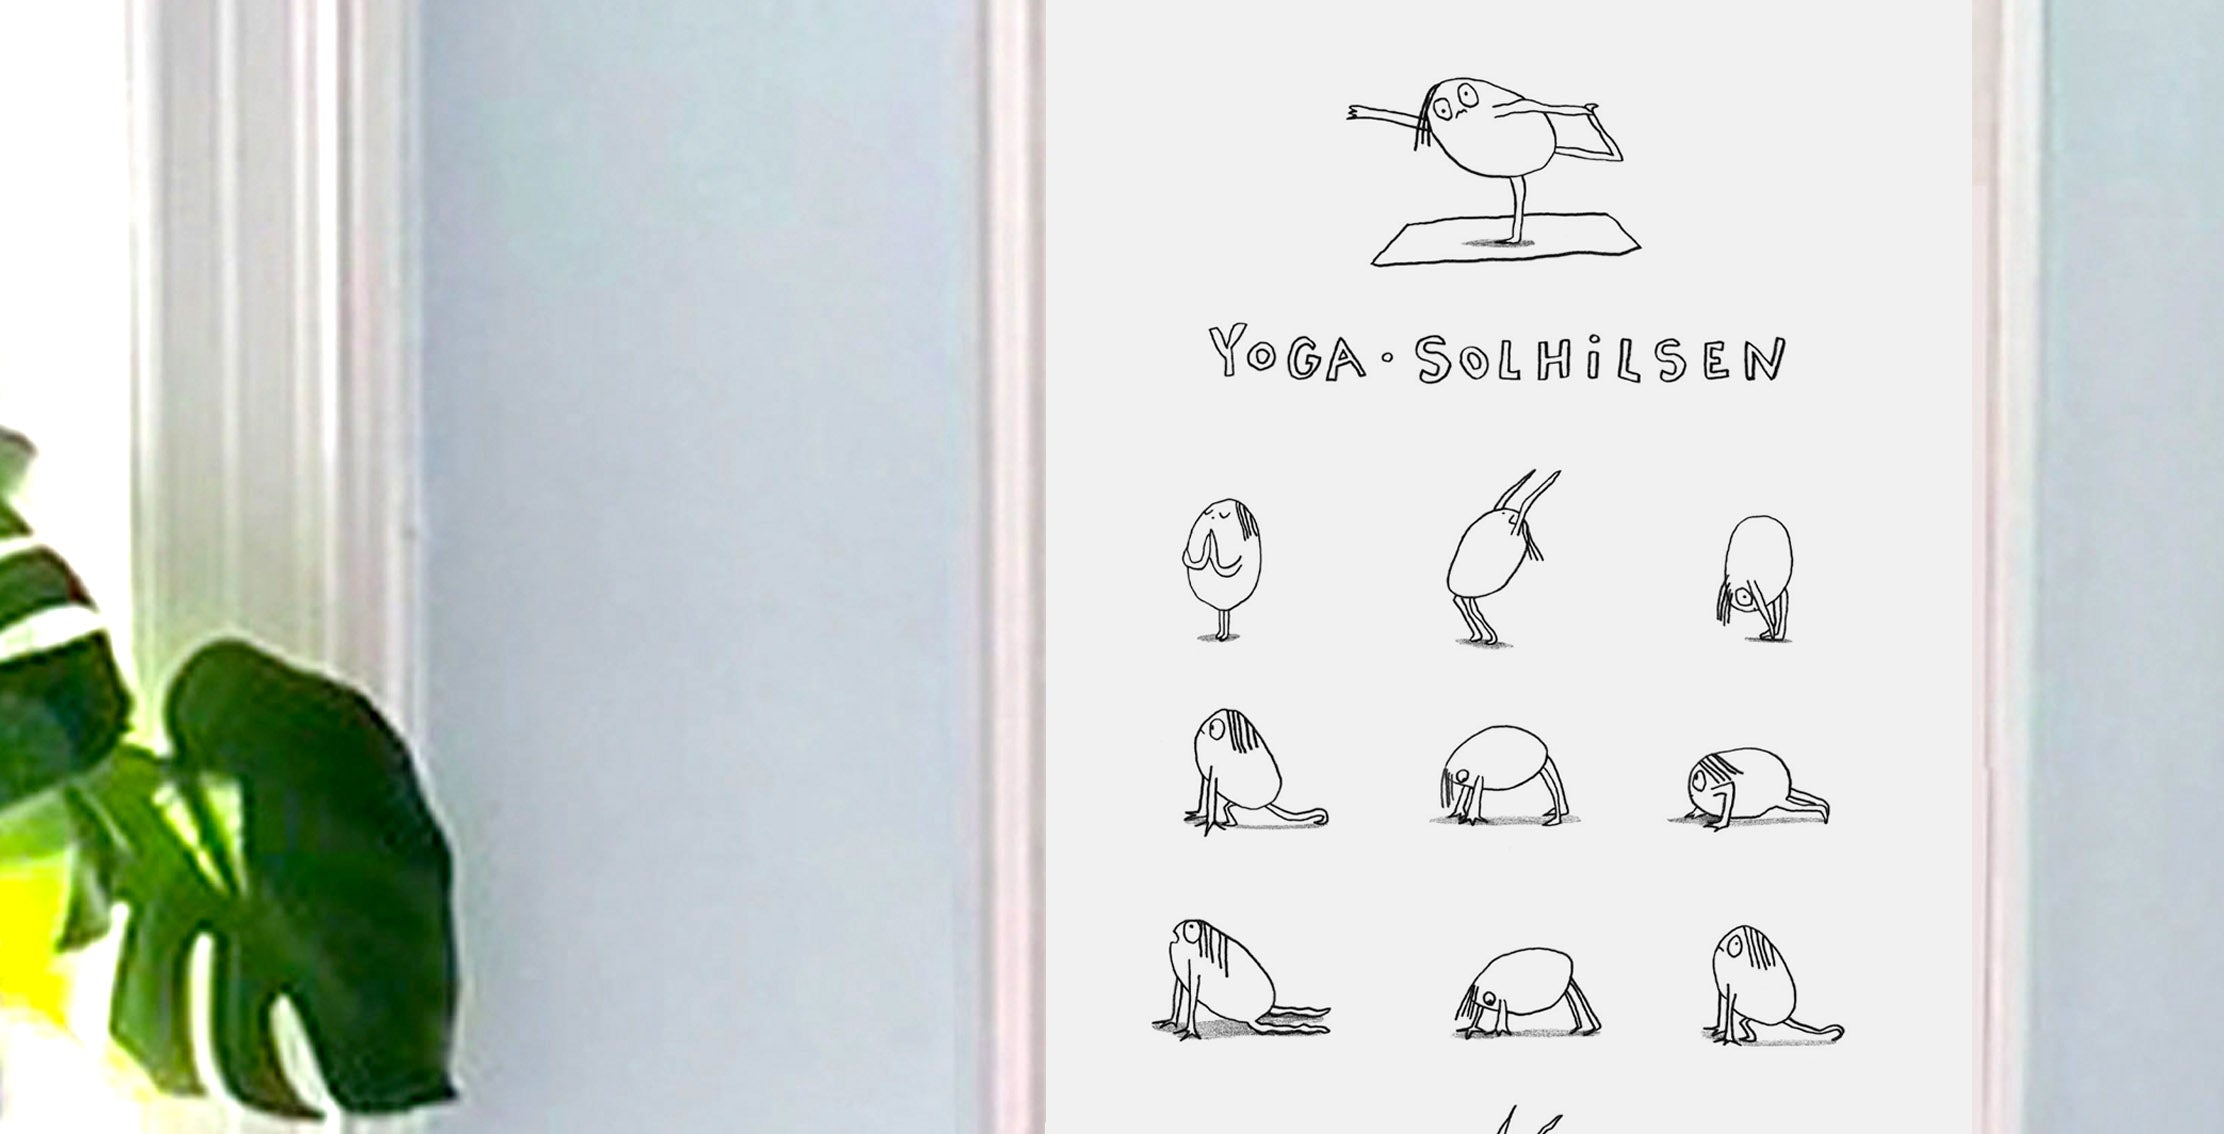 YOGA · SOLHiLSEN